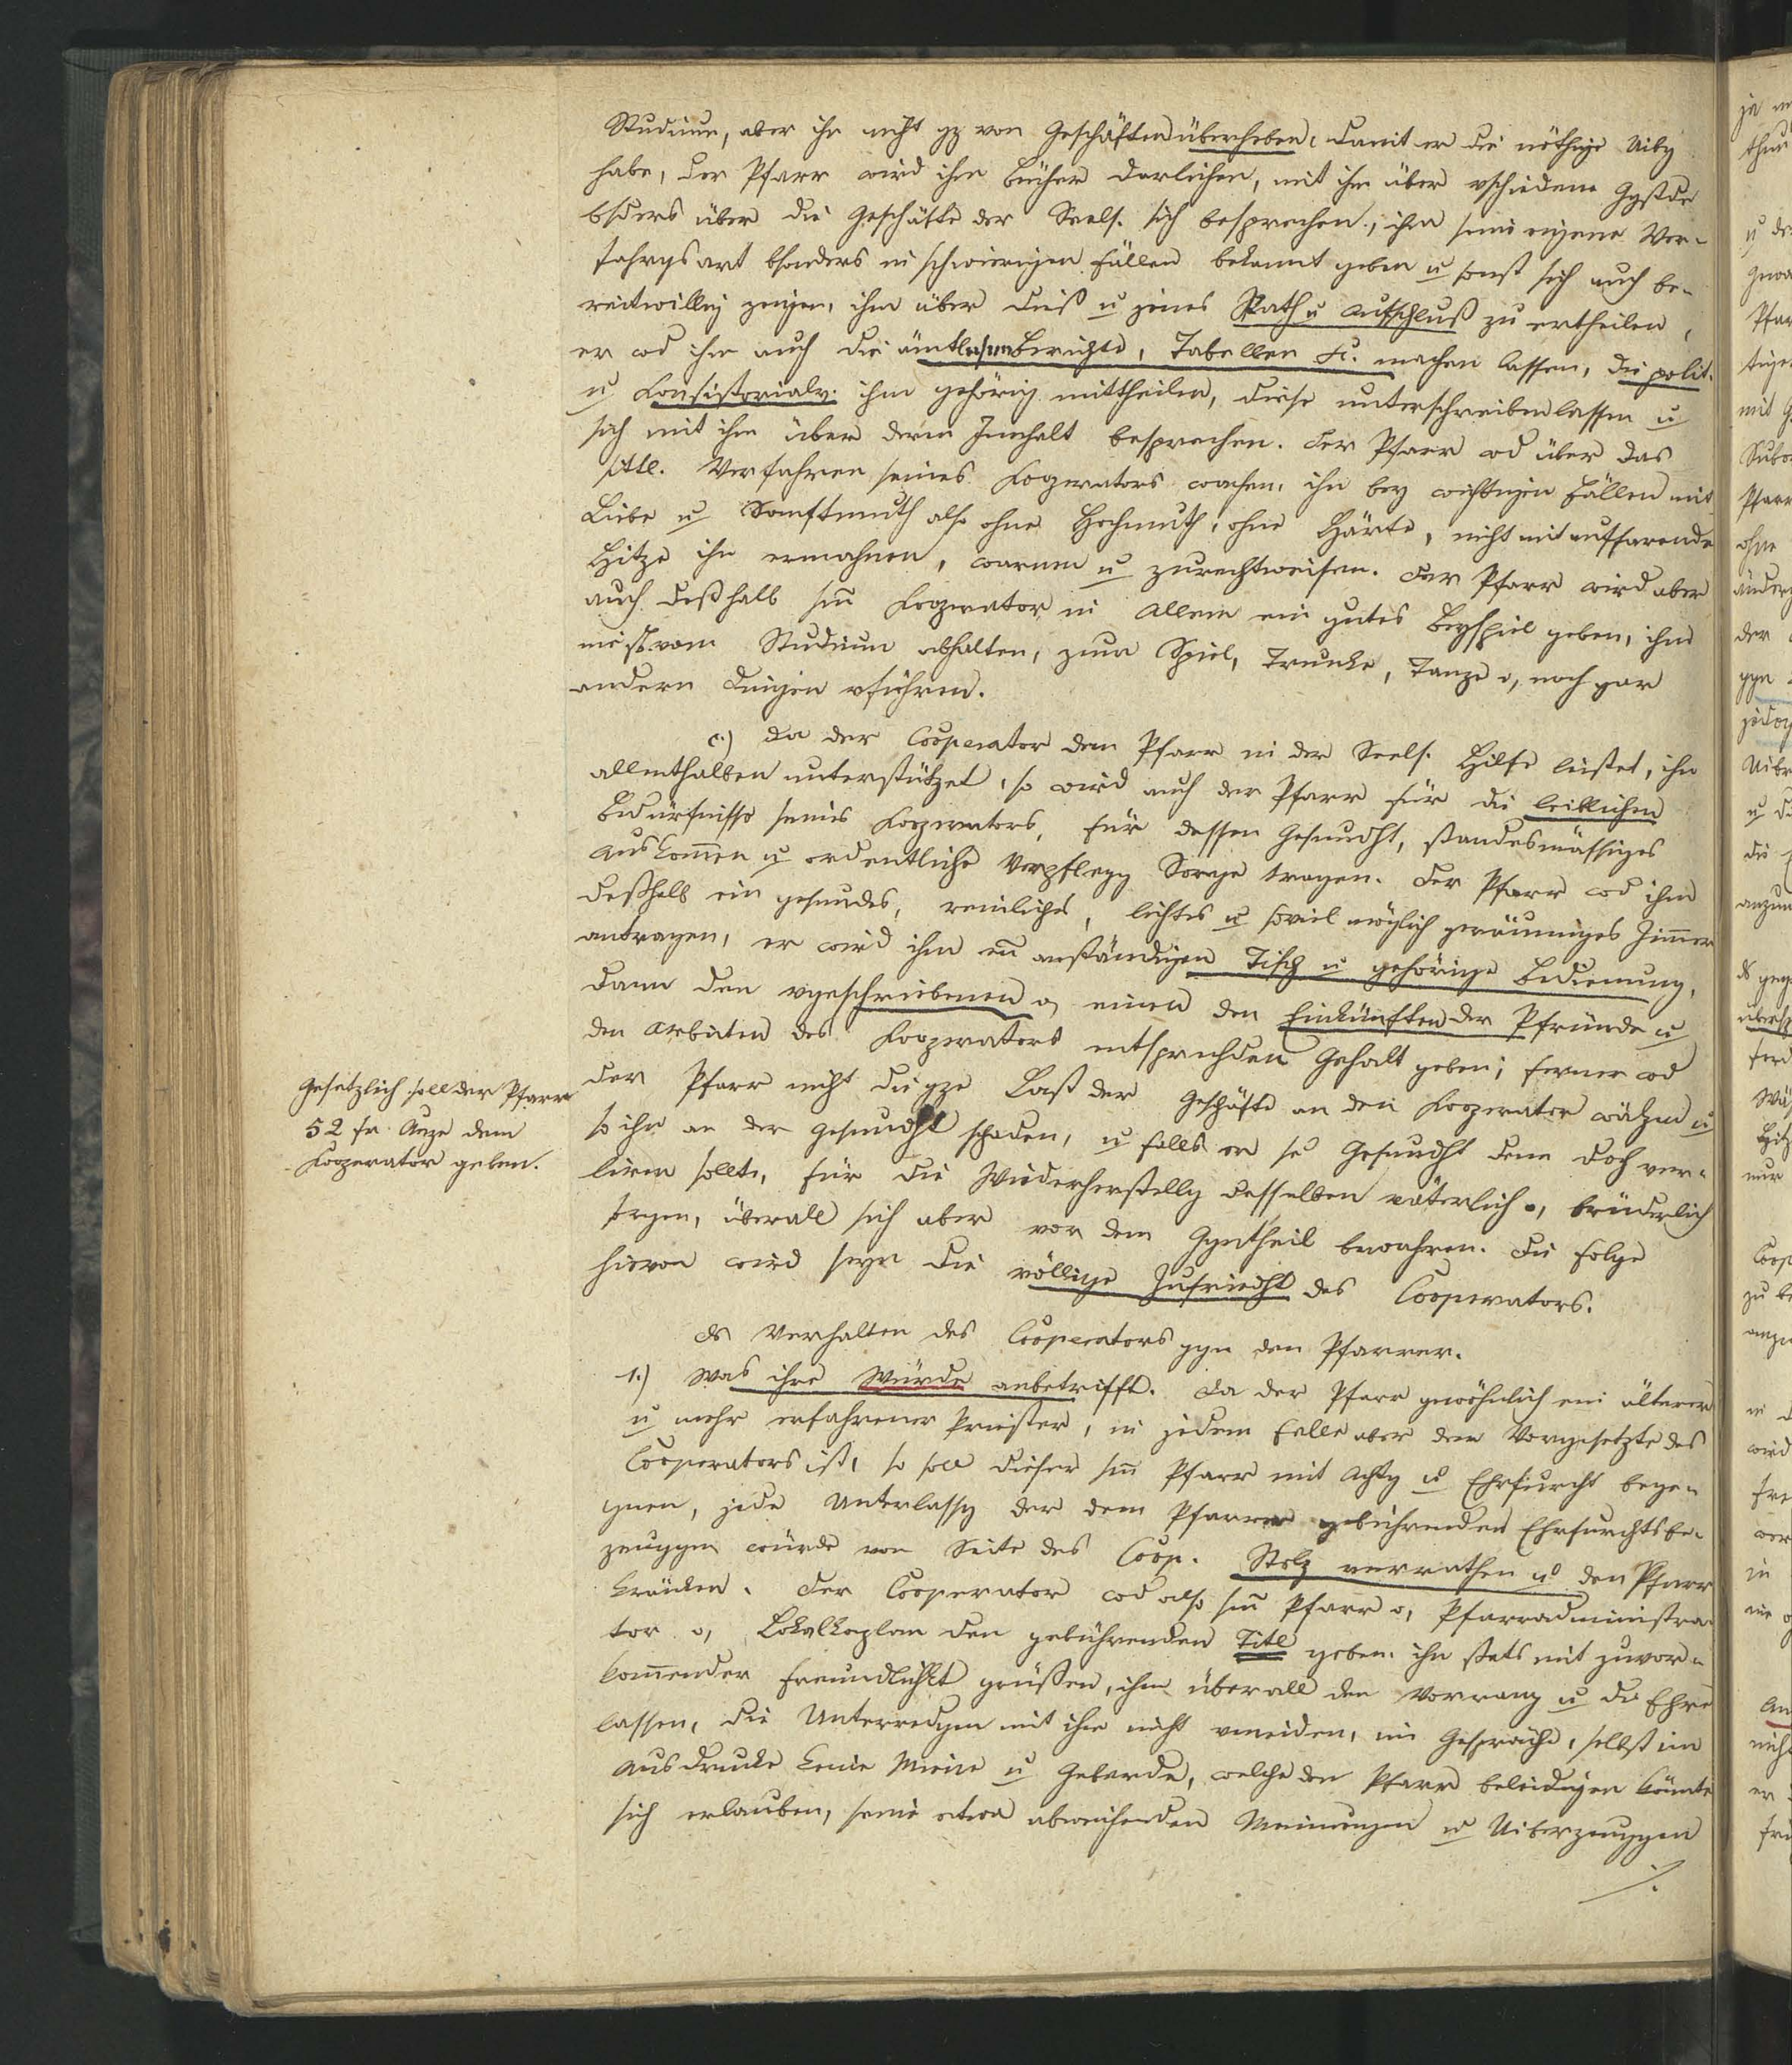 Studium, aber ihn nicht gz von Geschäften überheben, damit er die nöthige Uibg
habe, der Pfarr wird ihm Bücher darleihen, mit ihm über vschiedene Ggstde
bsders über die Geschäfte der Seels. sich besprechen, ihm seine eigene Ver-
fahrgsart bsonders in schwierigen Fällen bekannt geben u sonst sich auch be-
reitwillig zeigen, ihm über dieß u jenes Rath u Aufschluß zu ertheilen,
er wd ihn auch die ämtlichen Berichte, Tabellen etc. machen lassen, die polit.
u Consistorialv. ihm gehörig mittheilen, diese unterschreiben lassen u
sich mit ihm über deren Innhalt besprechen. Der Pfarr wd über das
sittl. Verfahren seines Kooperators wachen, ihn bey wichtigen Fällen mit
Liebe u Sanftmuth also ohne Hochmuth, ohne Härte, nicht mit auffarende
Hitze ihn ermahnen, warnen u zurechtweisen. Der Pfarr wird aber
auch deßhalb sm̅ Kooperator in Allem ein gutes Beyspiel geben, ihn
nicht vom Studium abhalten, zum Spiel, Trunke, Tanze o, noch gar
andern Dingen vführen.
c.) Da der Cooperator dem Pfarr in der Seels. Hilfe leistet, ihn
allenthalben unterstützet, so wird auch der Pfarr für die leiblichen
Bedürfnisse seines Kooperators, für dessen Gesundht, standesmässiges
Auskom̅en u ordentliche Verpflegg Sorge tragen. Der Pfarr wd ihm
deßhalb ein gesundes, reinliches, lichtes u soviel möglich geräumiges Zim̅er
antragen, er wird ihm en̅ anständigen Tisch u gehörige Bedienung,
dann den vgeschriebenen o, einen den Einkünften der Pfründe u
den Arbeiten des Kooperators entsprechden Gehalt geben; ferner wd
der Pfarr nicht die gze Last der Geschäfte an den Kooperator wälzen u
so ihn an der Gesundht schaden, u falls er se Gesundht denn doch ver-
lieren sollte, für die Wiederherstellg desselben väterlich o, brüderlich
sorgen, überall sich aber vor dem Ggntheil bewahren. Die Folge
hievon wird seyn die völlige Zufriedht des Cooperators.
Gesetzlich soll der Pfarr
52 fr. Auge dem
Kooperator geben.
Ds Verhalten des Cooperators ggn den Pfarrer.
1.) Was ihre Würde anbetrifft. Da der Pfarr gewöhnlich ein älterer
u mehr erfahrener Priester, in jedem Falle aber der Vorgesetzte des
Cooperators ist, so soll dieser sm̅ Pfarr mit Achtg u Ehrfurcht bege-
gnen, jede Unterlassg der dem Pfarrer gebührenden Ehrfurchtsbe-
zeuggen würde von Seite des Coop. Stolz verrathen u den Pfarr
kränken. Der Cooperator wd also sm̅ Pfarr o, Pfarradministra-
tor o, Lokalkaplan den gebührenden Titl geben, ihn stets mit zuvor-
kom̅ender Freundlichkt grüßen, ihm überall den Vorrang u die Ehre
lassen, die Unterredgen mit ihm nicht vmeiden, im Gespräche, selbst im
Ausdrucke keine Miene u Geberde, welche den Pfarr beleidigen könnte
sich erlauben, seine etwa abweichenden Meinungen u Uiberzeuggen
./.